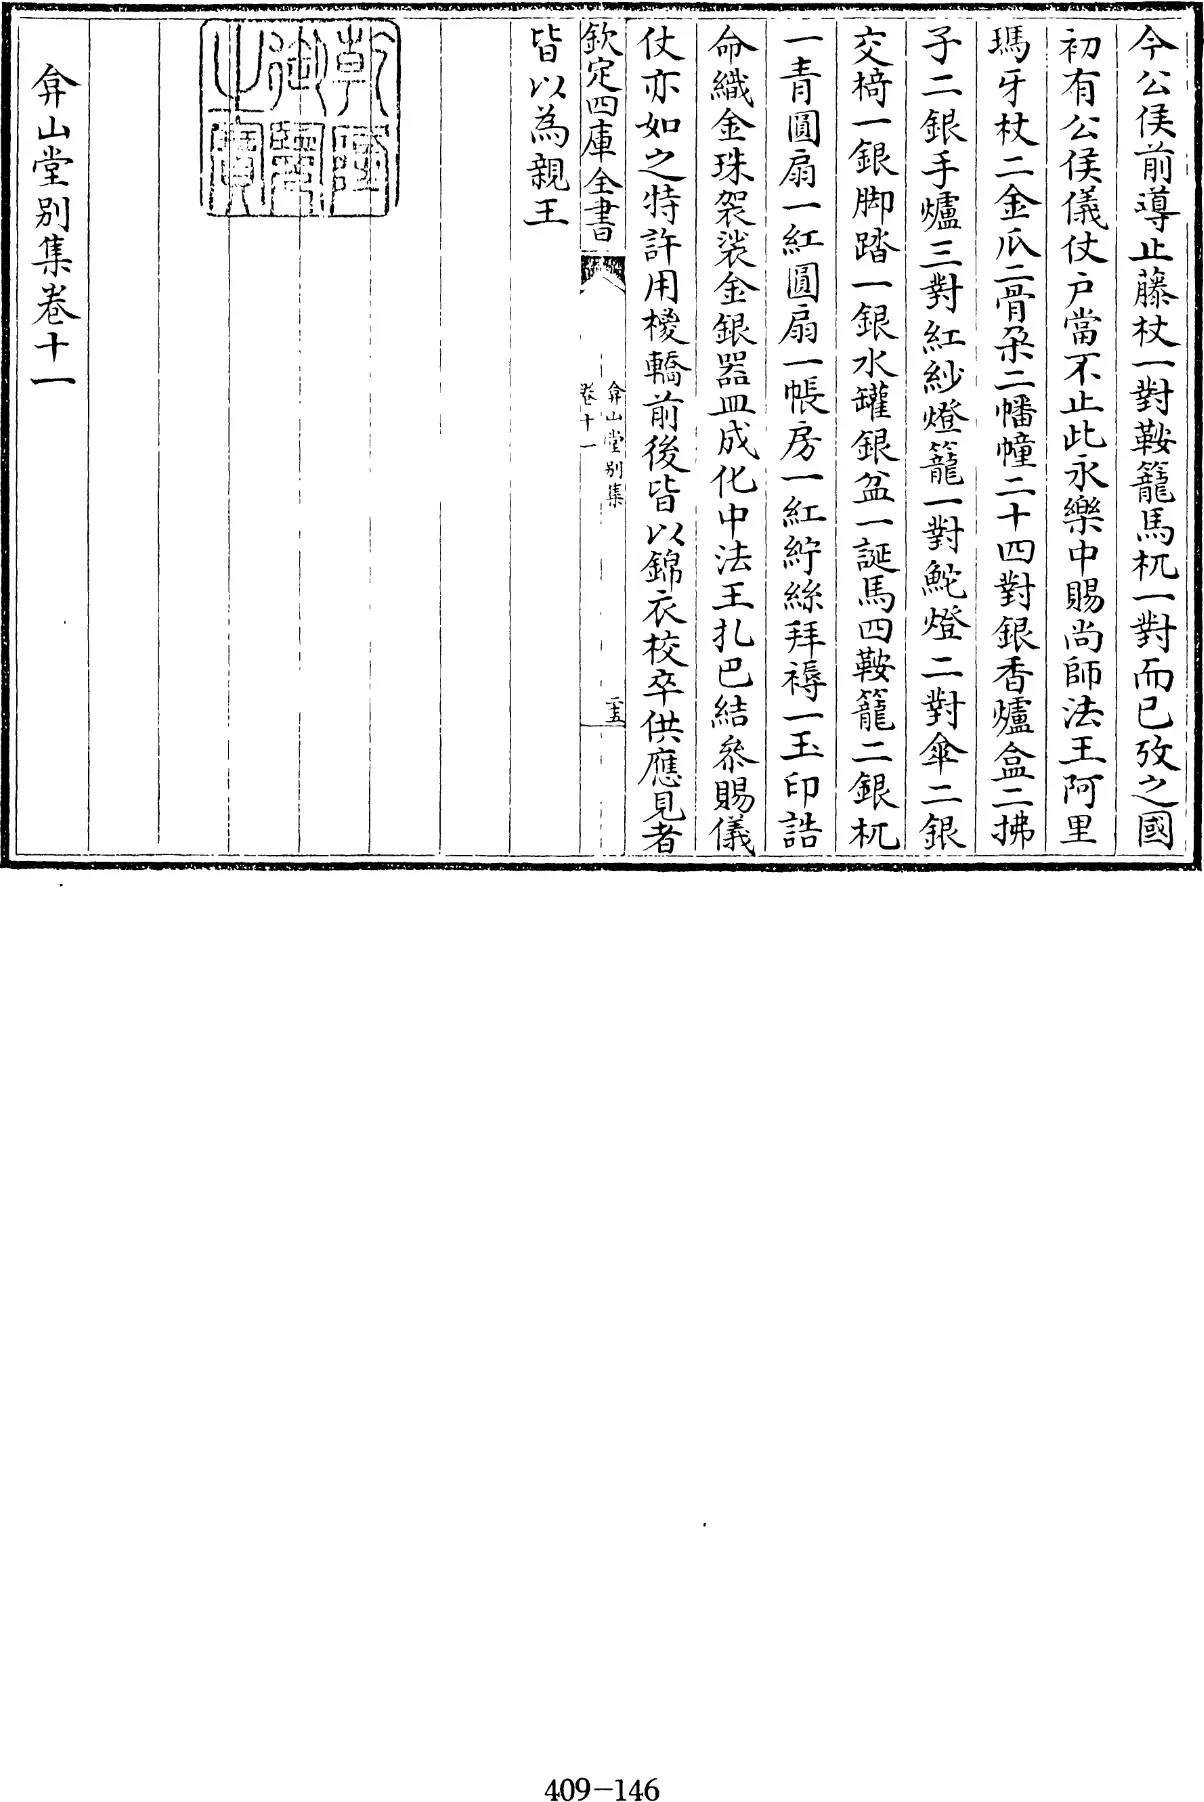 今公侯前導止藤杖一對鞍籠馬杌一對而已攷之國
初有公侯儀仗户當不止此永樂中賜尚師法王阿里
瑪牙杖二金瓜二骨朵二幡幢二十四對銀香爐盒二拂
子二銀手爐三對紅紗燈籠一對魫燈二對傘二銀
交椅一銀脚踏一銀水罐銀盆一誕馬四鞍籠二銀杌
一青圓扇一紅圓扇一帳房一紅紵絲拜褥一玉印誥
命織金珠袈裟金銀器皿成化中法王扎巴結叅賜儀
仗亦如之特許用椶轎前後皆以錦衣校卒供應見者
欽定四庫全書
弇山堂別集
卷十一
二十五
皆以為親王
乾隆御覽之寶
弇山堂別集卷十一
409-146